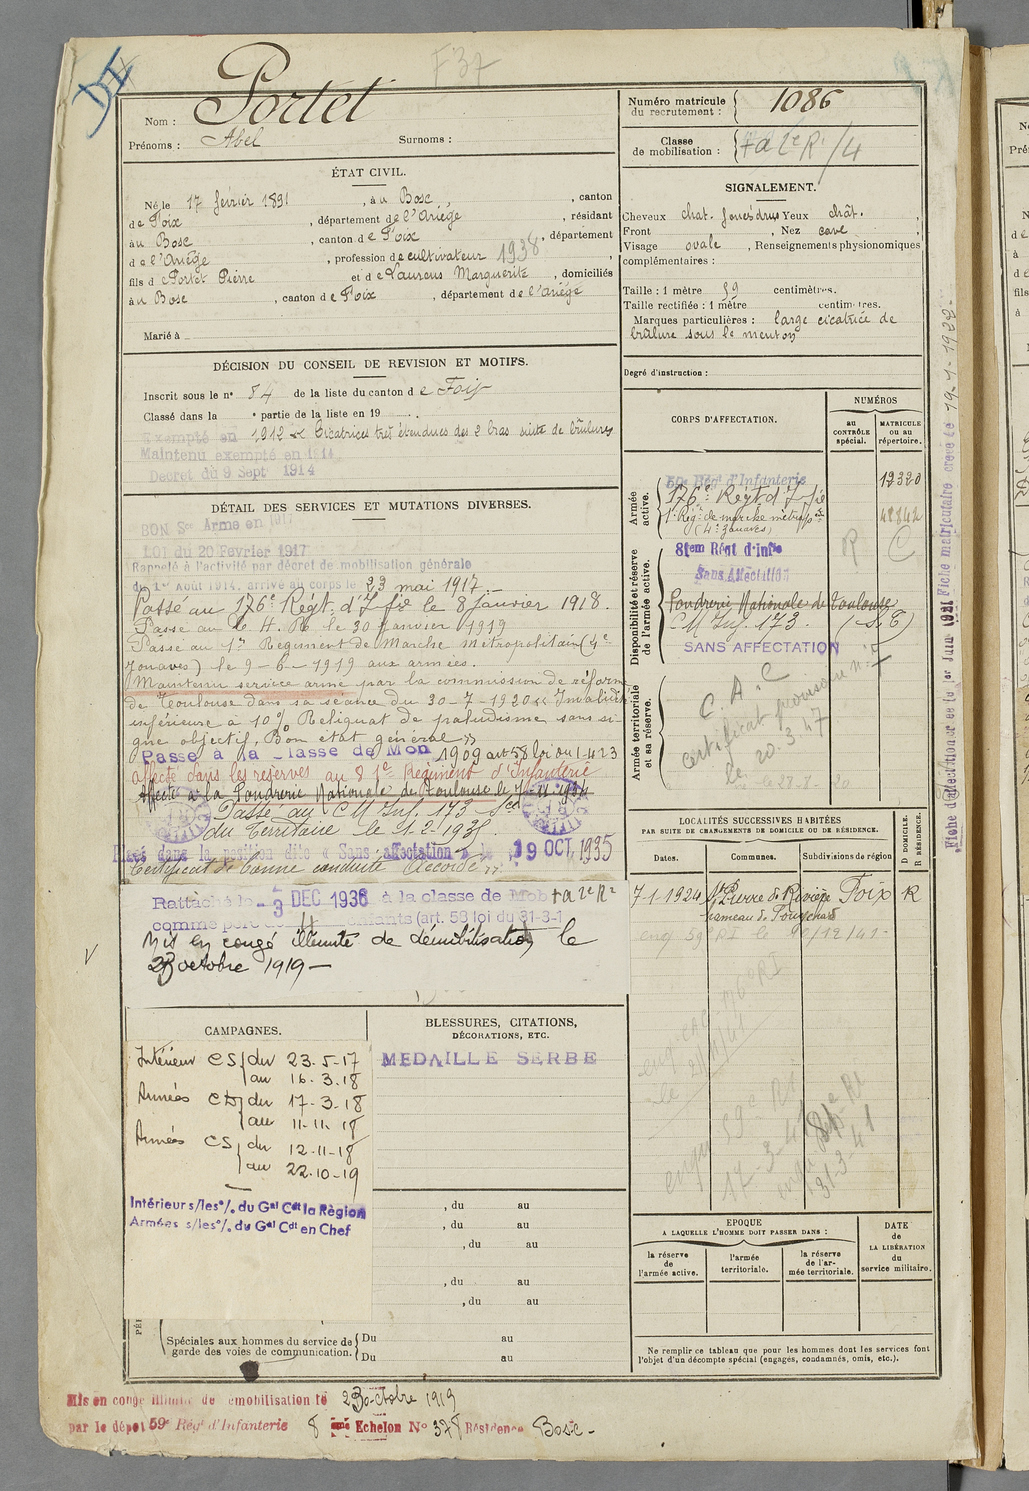 F37
Nom : Portet
Prénoms : Abel Surnoms :
Numéro matricule du recrutement : 1086
Classe de mobilisation : + a 2e R. /4
ÉTAT CIVIL.
Né le 17 février 1891, à u Bosc, canton
de Foix, département de l'Ariège, résidant
à u Bosc, canton de Foix, département
de l'Ariège, profession de cultivateur 1938,
fils de Portet Pierre et de Laurens Marguerite, domiciliés
à u Bosc, canton de Foix, département de l'Ariège
Marié à
SIGNALEMENT.
Cheveux chat. Yeux chât.
Front , Nez cave
Visage ovale, Renseignements physionomiques
complémentaires :
Taille : 1 mètre 59 centimètres.
Taille rectifiée : 1 mètre centimètres.
Marques particulières : large cicatrice de
brûlure sous le menton
Degré d'instruction :
DÉCISION DU CONSEIL DE REVISION ET MOTIFS.
Inscrit sous le n° 54 de la liste du canton de Foix
Classé dans la partie de la liste en 19
Exempté en 1912 « Cicatrices très étendues des 2 bras suite de brûlures
Maintenu exempté en 1914
Decret du 9 Sept 1914
DÉTAIL DES SERVICES ET MUTATIONS DIVERSES.
BON Sce Armé en 1917
LOI du 20 Fevrier 1917
Rappelé à l'activité par décret de mobilisation générale
du 1er Août 1914, arrivé au corps le 23 mai 1917
Passé au 176e Régt d'Ifie le 8 janvier 1918.
Passé au le 30 janvier 1919
Passé au 1er Regiment de Marche métropolitain (4e
zouaves) le 9-6-1919 aux armées.
Maintenu service armé par la commission de réforme
de Toulouse dans sa séance du 30-7-1920 « Invalidité
inférieure à 10% Reliquat de paludisme sans si-
gne objectif. Bon état général »
Passé à la classe de Mon 1909 art 58 loi du 1-4-23
affecté dans les réserves au 81e Régiment d'Infanterie
Affecté à la Fondrerie Nationale de Toulouse le
Passé au CM Inf. 173 Son
du Territoire le 1-2-1935
Placé dans la position dite « Sans affectation » le 19 OCT 1935
Certificat de bonne conduite « Accordé »
Rattaché le 3 DEC 1936 à la classe de Mob + a 2e R.
comme père de 4 enfants (art. 58 loi du 31-3-
Mis en congé illimité de démobilisation le
23 octobre 1919
CORPS D'AFFECTATION.
NUMÉROS
au CONTRÔLE spécial.
MATRICULE ou au répertoire.
Armée active.
59e Régt d'Infanterie 19320
176e Régt d'Ifie
1er Régt de marche métropo (4e zouaves)
Disponibilité et réserve de l'armée active.
81em Régt d'Infie R C
Sans Affectation
Fondrerie Nationale de Toulouse
CM Inf. 173.
SANS AFFECTATION
Armée territoriale et sa réserve.
C. A. C
certificat provisoire n°
le 20.3.47
LOCALITÉS SUCCESSIVES HABITÉES
PAR SUITE DE CHANGEMENTS DE DOMICILE OU DE RÉSIDENCE.
Dates. Communes. Subdivisions de région
D DOMICILE. R RÉSIDENCE.
7-1-1924 St Pierre de Rivière Foix R
hameau de
eng 59e RI le
enga 59e RI
17-3-41
31-3-41
CAMPAGNES.
Intérieur CS du 23-5-17
au 16-3-18
Armées CD du 17-3-18
au 11-11-18
Armées CS du 12-11-18
au 22-10-19
Intérieur s/les °/. du Gal Cdt la Région
Armées s/les °/. du Gal Cdt en Chef
BLESSURES, CITATIONS,
DÉCORATIONS, ETC.
MEDAILLE SERBE
, du au
, du au
, du au
, du au
, du au
Spéciales aux hommes du service de garde des voies de communication.
Du au
Du au
EPOQUE
A LAQUELLE L'HOMME DOIT PASSER DANS :
la réserve de l'armée active.
l'armée territoriale.
la réserve de l'armée territoriale.
DATE de LA LIBÉRATION du service militaire.
Ne remplir ce tableau que pour les hommes dont les services font
l'objet d'un décompte spécial (engagés, condamnés, omis, etc.).
Mis en congé illimité de démobilisation le 23 octobre 1919
par le dépôt 59e Régt d'Infanterie 8 ème Echelon N° 378 Résidence Bosc